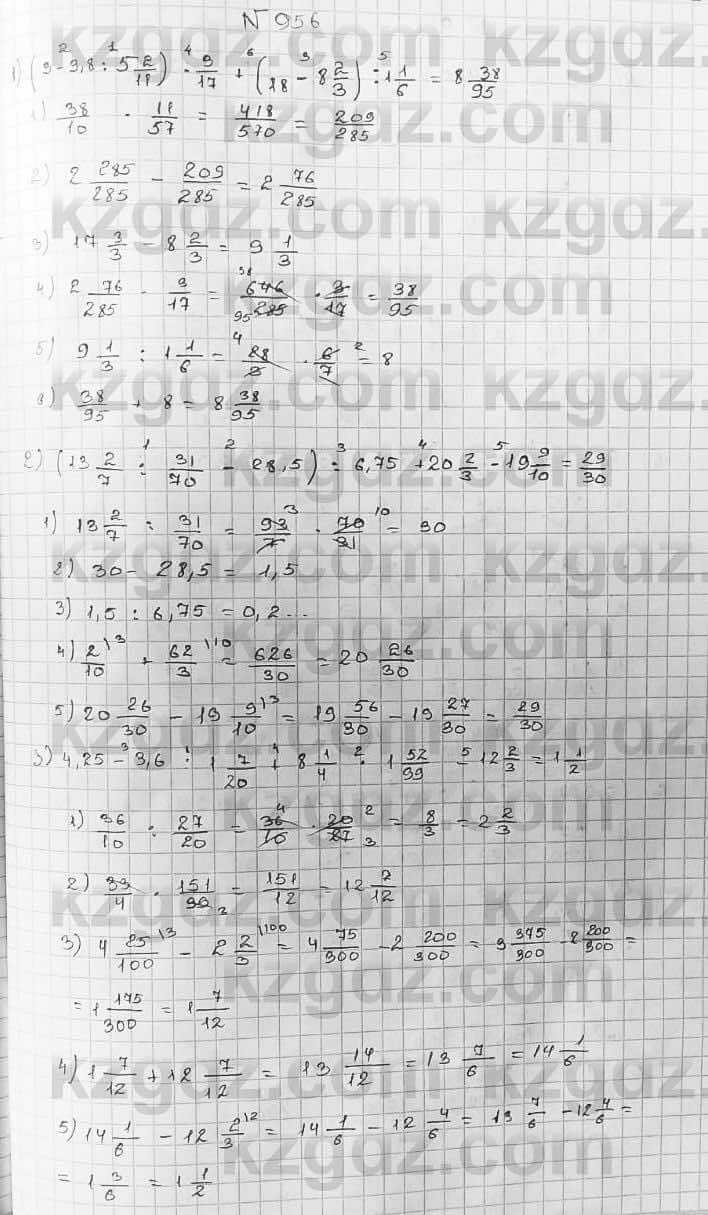 N 956
1) (3 - 3,8 : 5 2/11) · 9/17 + (18 - 8 2/3) : 1 1/6 = 8 38/95
1) 38/10 · 11/57 = 418/570 = 209/285
2) 2 285/285 - 209/285 = 2 76/285
3) 17 3/3 - 8 2/3 = 9 1/3
4) 2 76/285 · 3/17 = 646/285 · 3/17 = 38/95
5) 9 1/3 : 1 1/6 = 28/3 · 6/7 = 8
38/95 + 8 = 8 38/95
2) (13 2/7 : 31/70 - 28,5) : 6,75 + 20 2/3 - 19 9/10 = 29/30
1) 13 2/7 : 31/70 = 93/7 · 70/31 = 30
2) 30 - 28,5 = 1,5
3) 1,5 : 6,75 = 0,2...
4) 2/10 + 62/3 = 626/30 = 20 26/30
5) 20 26/30 - 19 9/10 = 19 56/30 - 19 27/30 = 29/30
3) 4,25 - 3,6 : 1 7/20 + 8 1/4 · 1 52/99 - 12 2/3 = 1 1/2
1) 36/10 : 27/20 = 36/10 · 20/27 = 8/3 = 2 2/3
2) 33/4 · 151/99 = 151/12 = 12 7/12
3) 4 25/100 - 2 2/3 = 4 75/300 - 2 200/300 = 3 375/300 - 2 200/300 =
= 1 175/300 = 1 7/12
4) 1 7/12 + 12 7/12 = 13 14/12 = 13 7/6 = 14 1/6
5) 14 1/6 - 12 2/3 = 14 1/6 - 12 4/6 = 13 7/6 - 12 4/6 =
= 1 3/6 = 1 1/2
kzgdz.com